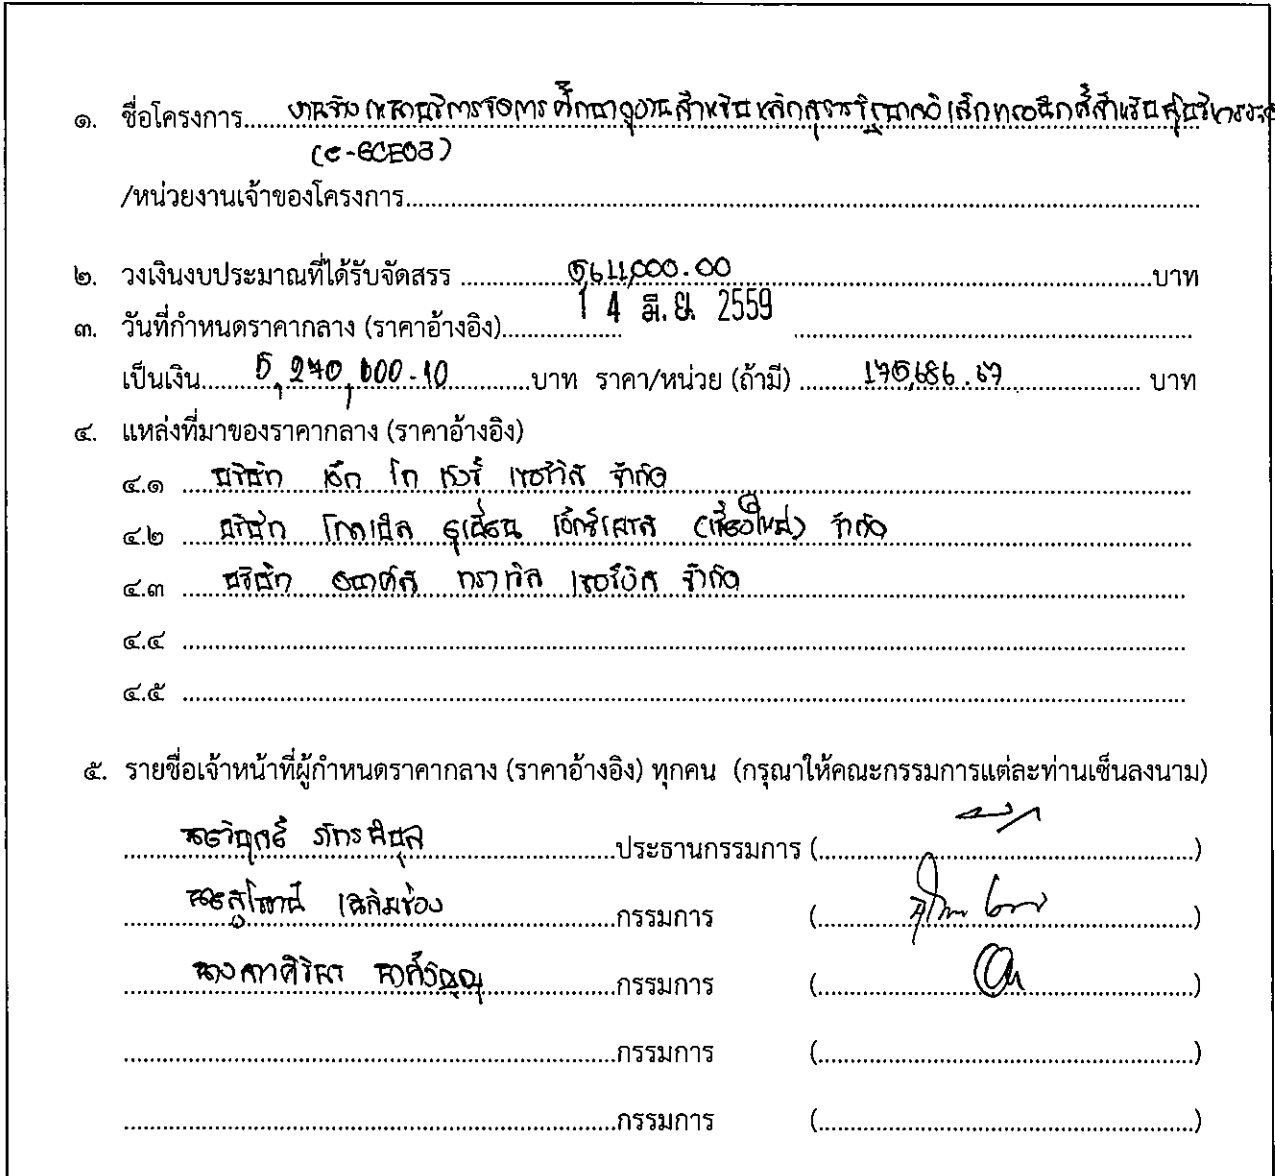 ๑. ชื่อโครงการ.....งานจ้างเหมาบริการจัดการศึกษาดูงานสำหรับหลักสูตรรัฐบาลอิเล็กทรอนิกส์สำหรับผู้บริหารระดับ
(e-GCEO3)
/หน่วยงานเจ้าของโครงการ.....
๒. วงเงินงบประมาณที่ได้รับจัดสรร .....5,611,000.00.....บาท
๓. วันที่กำหนดราคากลาง (ราคาอ้างอิง).....14 มิ.ย. 2559.....
เป็นเงิน.....5,270,600.10.....บาท ราคา/หน่วย (ถ้ามี) .....175,686.67..... บาท
๔. แหล่งที่มาของราคากลาง (ราคาอ้างอิง)
๔.๑ บริษัท เอ็ก โก ทัวร์ เซอร์วิส จำกัด
๔.๒ บริษัท โกลเบิล ยูเนี่ยน เอ็กซ์เพรส (เชียงใหม่) จำกัด
๔.๓ บริษัท ทราเวิล เซอร์วิส จำกัด
๔.๔ .....
๔.๕ .....
๕. รายชื่อเจ้าหน้าที่ผู้กำหนดราคากลาง (ราคาอ้างอิง) ทุกคน (กรุณาให้คณะกรรมการแต่ละท่านเซ็นลงนาม)
.....ประธานกรรมการ (.....)
.....กรรมการ (.....)
.....กรรมการ (.....)
.....กรรมการ (.....)
.....กรรมการ (.....)